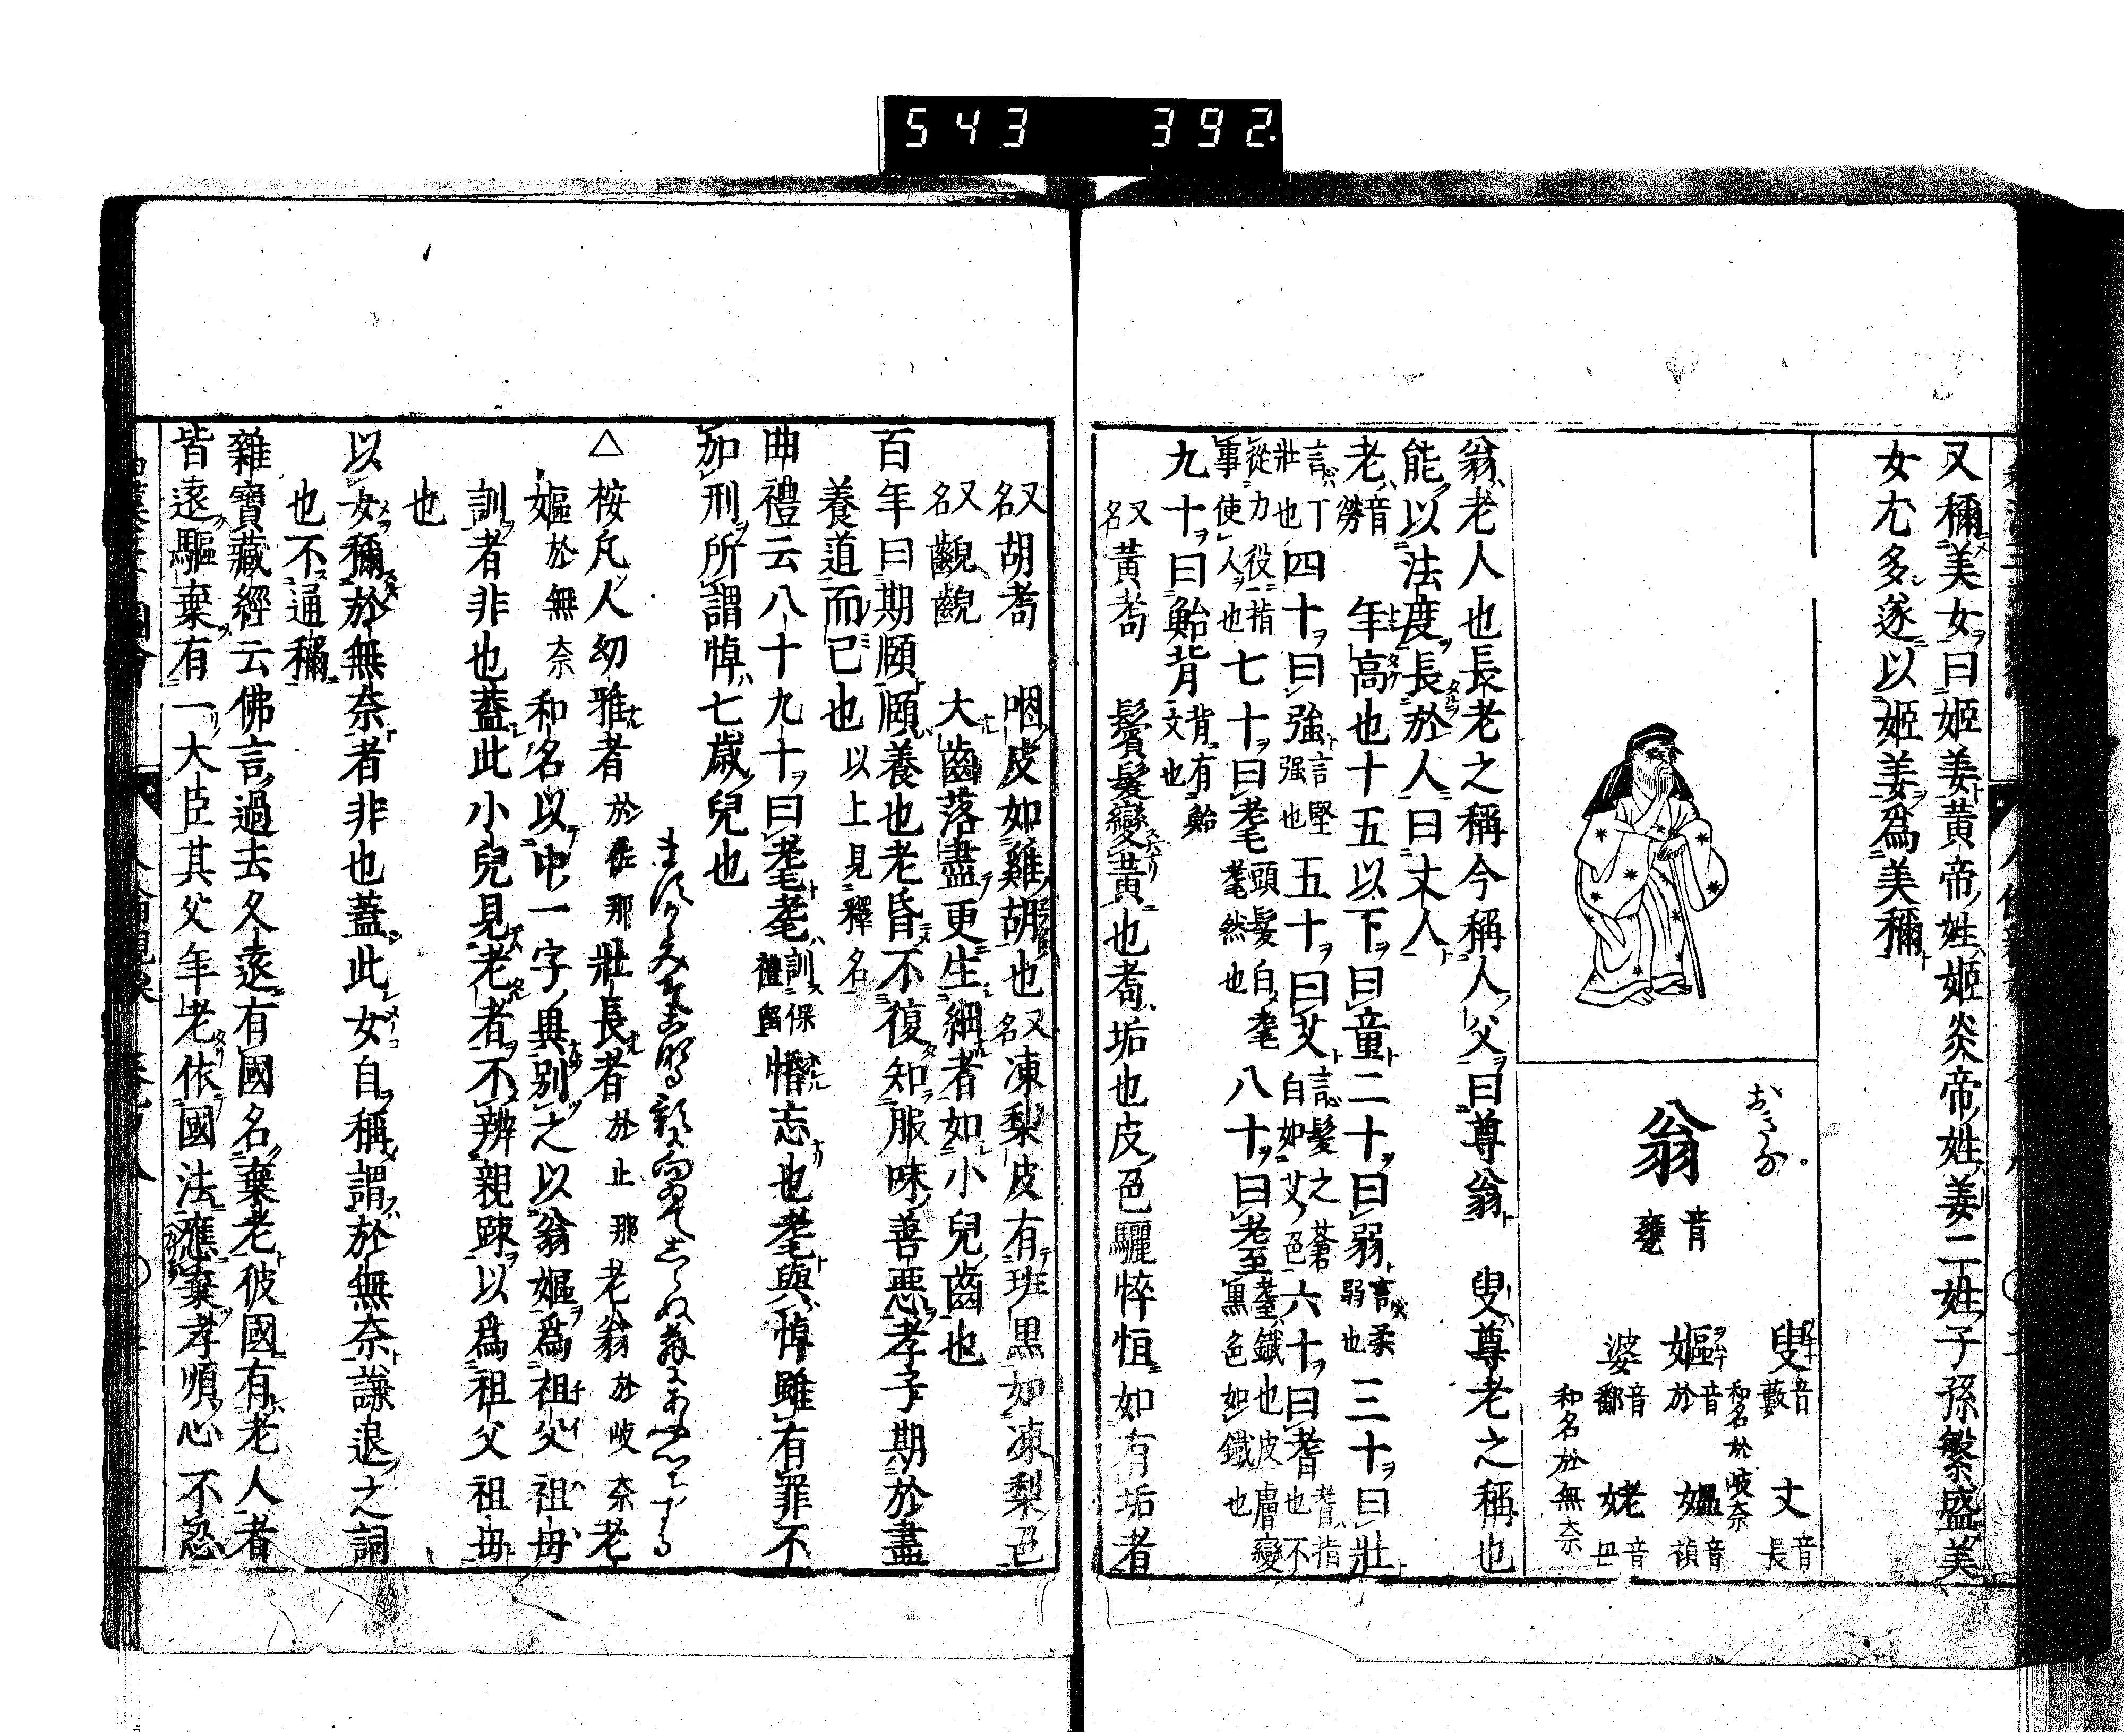 543 392
又稱美女曰姬姜黃帝姓姬炎帝姓姜二姓子孫繁盛美
女尤多遂以姬姜爲美稱
おきな
翁 音甕
叟 音藪 丈 音長
和名於岐奈
嫗 音於 媼 音禎
婆 音鄱 姥 音母
和名於無奈
翁老人也長老之稱今稱人父曰尊翁 叟尊老之稱也
能以法度長於人曰丈人
老 音勞 年高也十五以下曰童二十曰弱 言柔弱也 三十曰壯
言丁壯也 四十曰強 言堅强也 五十曰艾 言髮之蒼白如艾色 六十曰耆 耆指也不
從力役指事使人也 七十曰耄 頭髮白耄耄然也 八十曰耋 耋鐵也皮膚變黑色如鐵也
九十曰鮐背 背有鮐文也
又名黃耈 鬢髮變黃也耈垢也皮色驪悴恒如有垢者
又名胡耈 咽皮如雞胡也 又名凍梨皮有班黒如凍梨色
又名齯齯 大齒落盡更生細者如小兒齒也
百年曰期頤頤養也老昏不復知服味善惡孝子期於盡
養道而已也 以上見釋名
曲禮云八十九十曰耄耄 訓保禮留 惛志也耄與悼雖有罪不
加刑所謂悼七歲兒也
△桉凡人幼雅者 於佐那 壯長者 於止那 老翁 於岐奈 老
嫗 於無奈 和名以中一字異別之以翁嫗爲祖父祖母
訓者非也蓋此小兒見老者不辨親踈以爲祖父祖母
也
以女稱於無奈者非也蓋此女自稱謂於無奈謙退之詞
也不通稱
雜寶藏經云佛言過去久遠有國名棄老彼國有老人者
皆遠驅棄有一大臣其父年老依國法應棄孝順心不忍